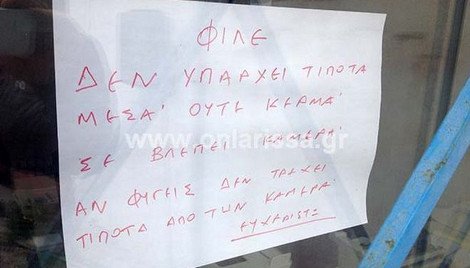 ΦΙΛΕ
ΔΕΝ ΥΠΑΡΧΕΙ ΤΙΠΟΤΑ
ΜΕΣΑ' ΟΥΤΕ ΚΕΡΜΑ'
www.onlarissa.gr
ΣΕ ΒΛΕΠΕΙ ΚΑΜΕΡΑ'
ΑΝ ΦΥΓΕΙΣ ΔΕΝ ΤΡΕΧΕΙ
ΤΙΠΟΤΑ ΑΠΟ ΤΩΝ ΚΑΜΕΡΑ'
ΕΥΧΑΡΙΣΤΩ